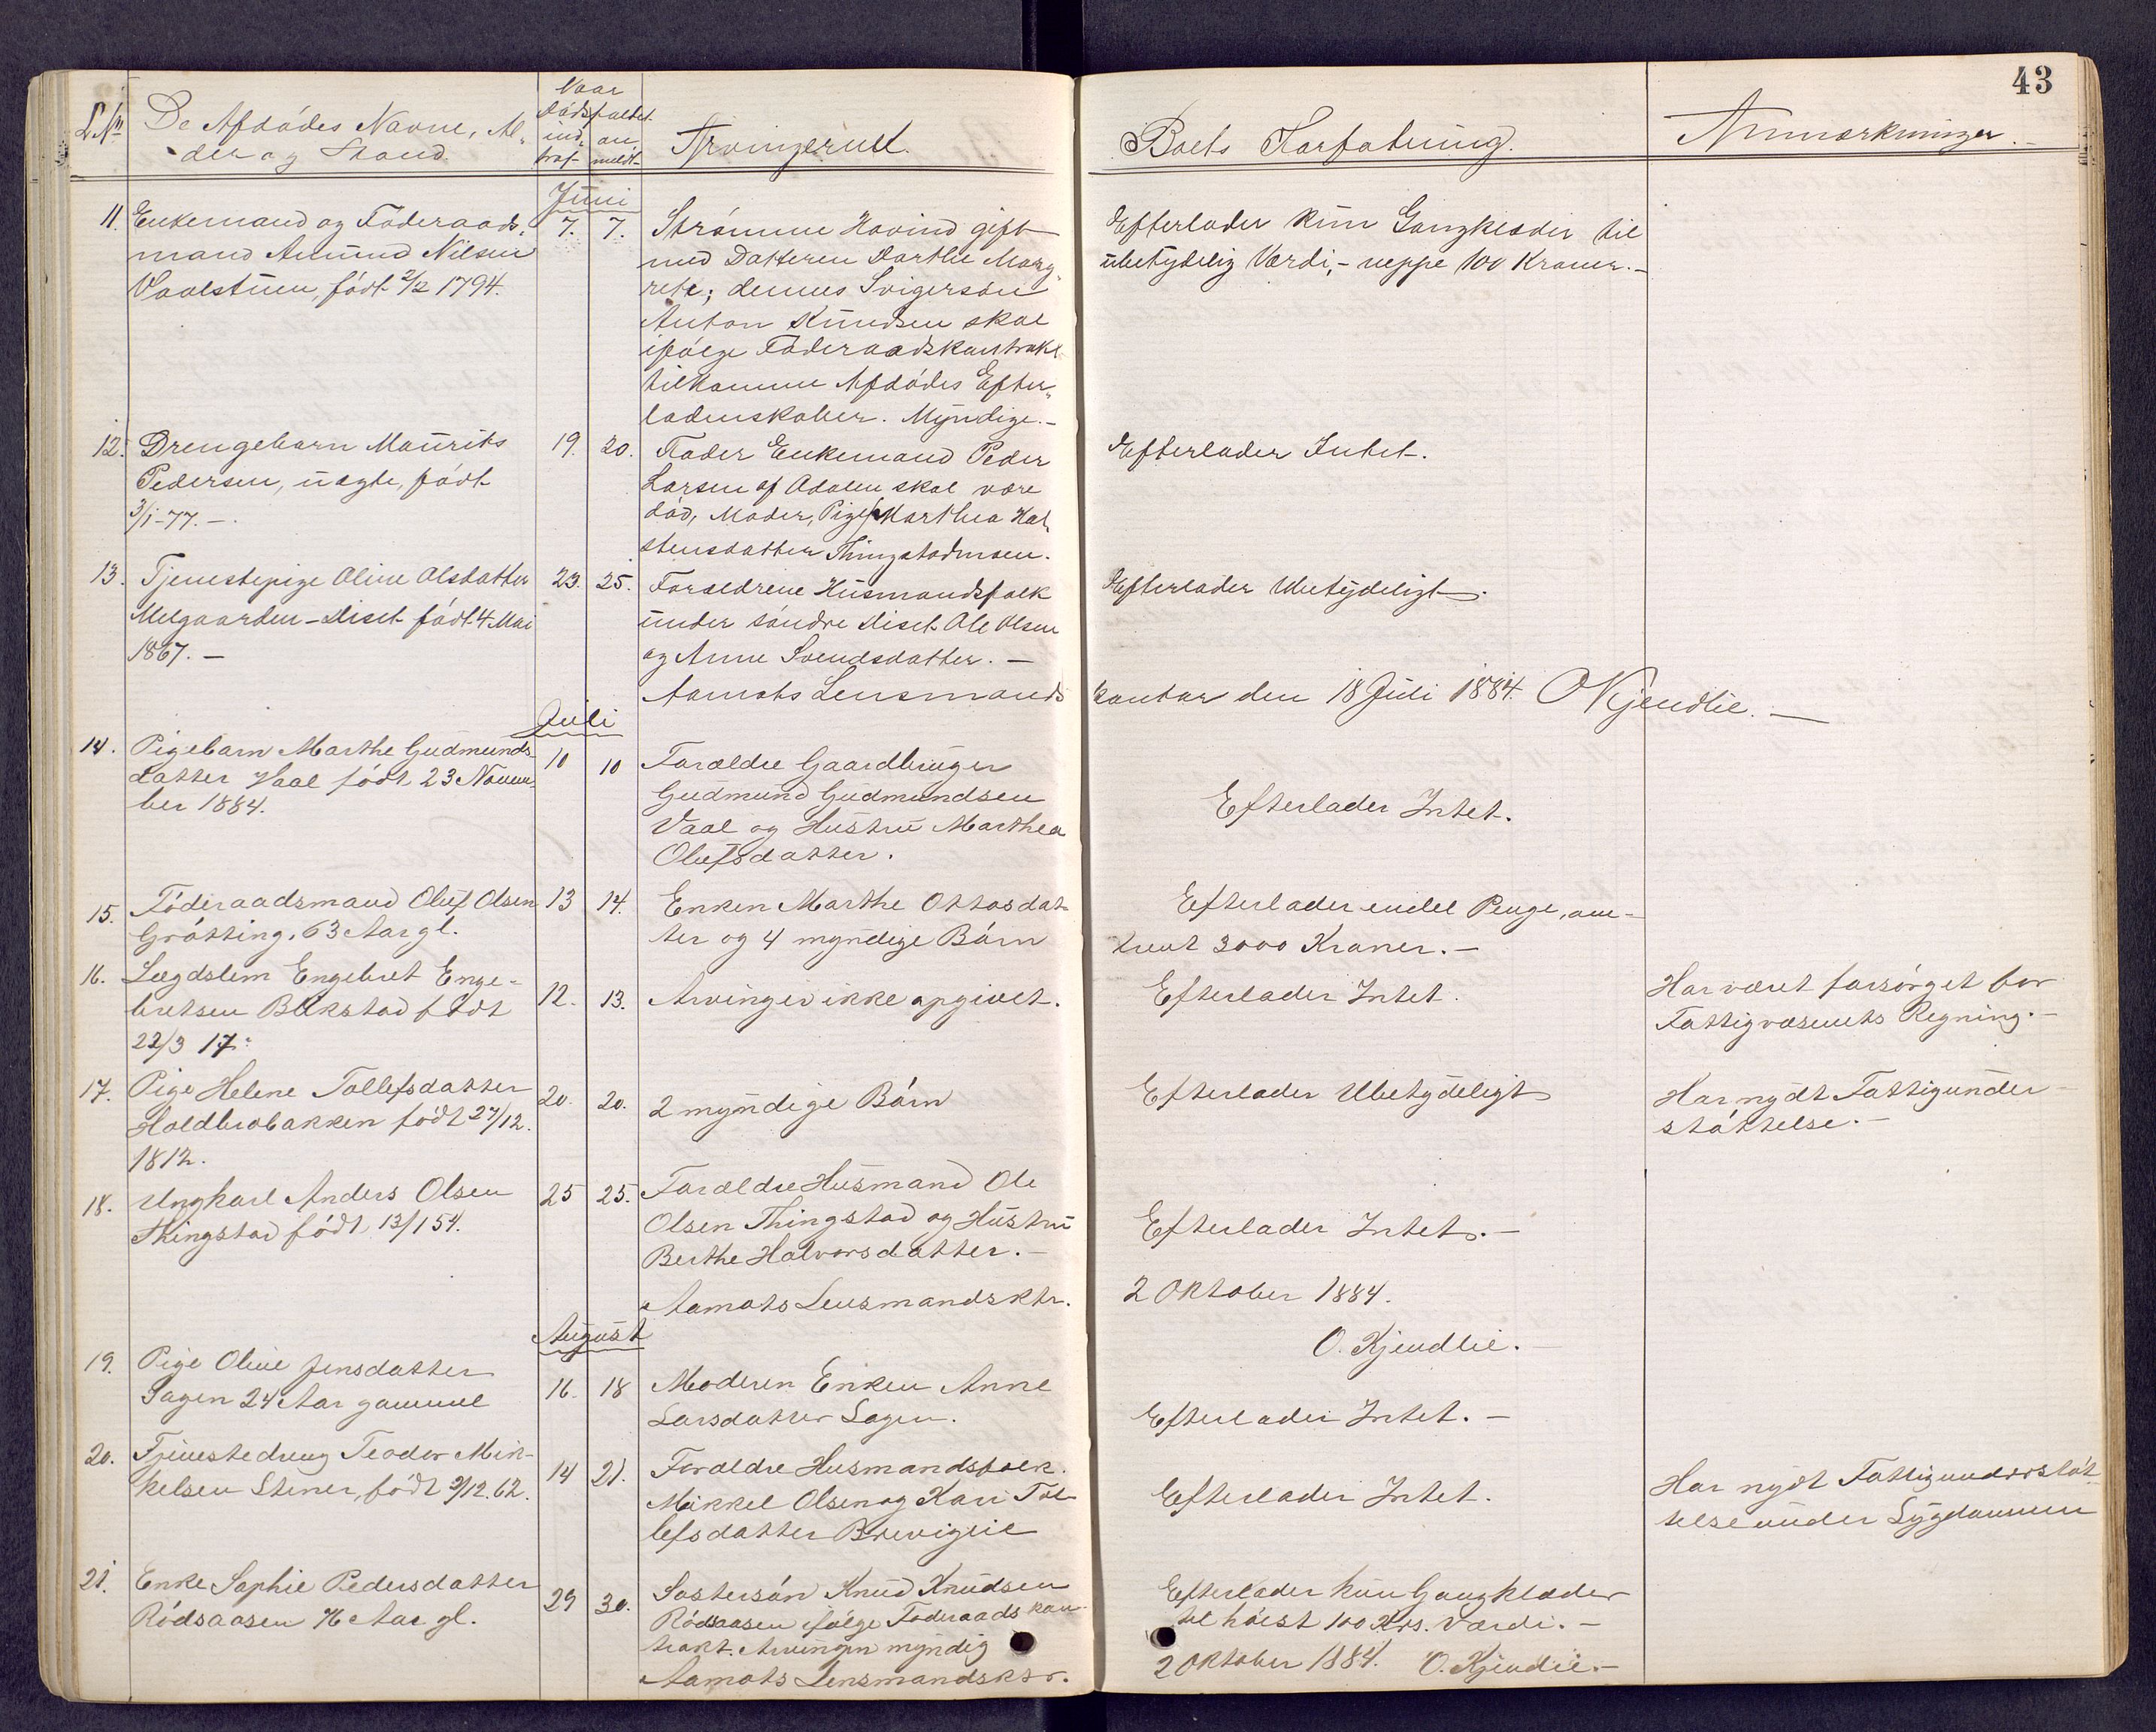 43
L.No
De Afdödes Navne, Al-
der og Stand.
Naar
Dödsfaldet
ind-
traf
an-
meldt
Arvingerne.
Boets Forfatning.
Anmærkninger.
Juni
11. Enkemand og Föderaads-
mand Amund Nilsen
født 2/12 1794.
7. 7.
Strömme Hovind gift
med Datteren Dorthe Marg-
rete; dennes Svigersön
Anton Knudsen skal
ifölge Föderaadskontrakt
tilkomme Afdödes Efter-
ladenskaber. Myndige.-
Efterlader kun Gangklæder til
ubetydelig Værdi,- neppe 100 Kroner.-
12. Drengebarn Maurits
Pedersen, uægte, født
3/1-77.-
19. 20.
Fader Enkemand Peder
Larsen af Aadalen skal være
död, Moder, Pige Marthea Hal-
stensdatter Thingstadmoen.
Efterlader Intet.
13. Tjenestepige Oline Olsdatter
Melgaarden-Diset født 4 Mai
1867.-
23. 25.
Forældrene Husmandsfolk
under söndre Diset Ole Olsen
og Anne Svendsdatter.-
Efterlader Ubetydeligt.
Aamots Lensmands
kontor den 18 Juli 1884. O Kjendlie.-
Juli
14. Pigebarn Marthe Gudmunds-
datter Vaal født 23 Novem-
ber 1884.
10 10
Forældre Gaardbruger
Gudmund Gudmundsen
Vaal og Hustru Marthea
Olufsdatter.
Efterlader Intet.
15. Föderaadsmand Oluf Olsen
Grötting, 63 Aar gl.
13 14.
Enken Marthe Ottosdat-
ter og 4 myndige Börn
Efterlader endel Penge, om-
trent 3000 Kroner.-
16. Lægdslem Engebret Enge-
bretsen Blikstad født
22/3 17.
12. 13.
Arvinger ikke opgivet.
Efterlader Intet.
Har været forsörget for
Fattigvæsenets Regning.-
17. Pige Helene Tollefsdatter
Holdbrobakken født 27/12.
1812.
20. 20.
2 myndige Börn
Efterlader Ubetydeligt
Har nydt Fattigunder-
stöttelse.-
18. Ungkarl Anders Olsen
Thingstad født 13/1 54.
25 25.
Forældre Husmand Ole
Olsen Thingstad og Hustru
Berthe Halvorsdatter.-
Efterlader Intet.-
Aamots Lensmandsktr.
2 Oktober 1884.
O. Kjendlie.-
August
19. Pige Oline Jensdatter
Sagen 24 Aar gammel
16. 18
Moderen Enken Anne
Larsdatter Sagen.
Efterlader Intet.-
20. Tjenestedreng Teodor Mik-
kelsen Stener, født 9/12. 62.
14 21.
Forældre Husmandsfolk.
Mikkel Olsen og Kari Tol-
lefsdatter
Efterlader Intet.
Har nydt Fattigunderstöt-
telse under Sygdommen
21. Enke Sophie Pedersdatter
Rödsaasen 76 Aar gl.
29 30.
Sostersön Knud Knudsen
Rödsaasen ifölge Föderaadskon-
trakt. Arvingen myndig
Efterlader kun Gangklæder
til höist 100 Krs. Værdi.-
Aamots Lensmandsktr.
2 Oktober 1884. O. Kjendlie.-